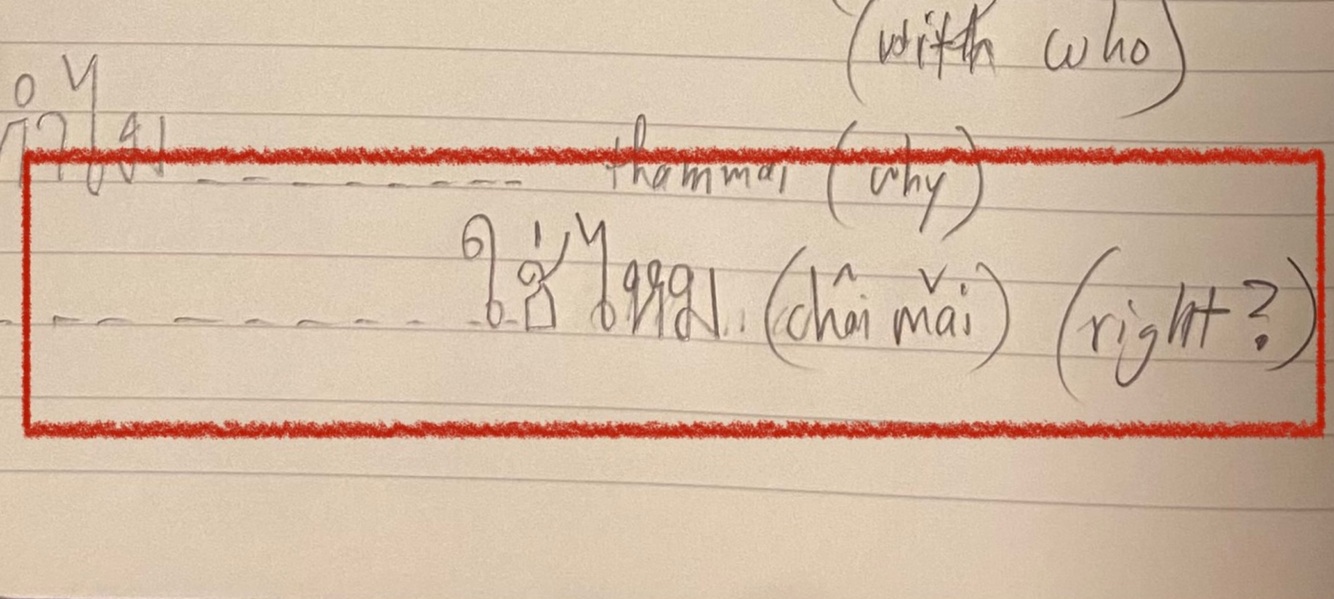 (with who)
ทำไม -------- thammai (why)
---------- ใช่ไหม.. (châi mǎi) (right?)